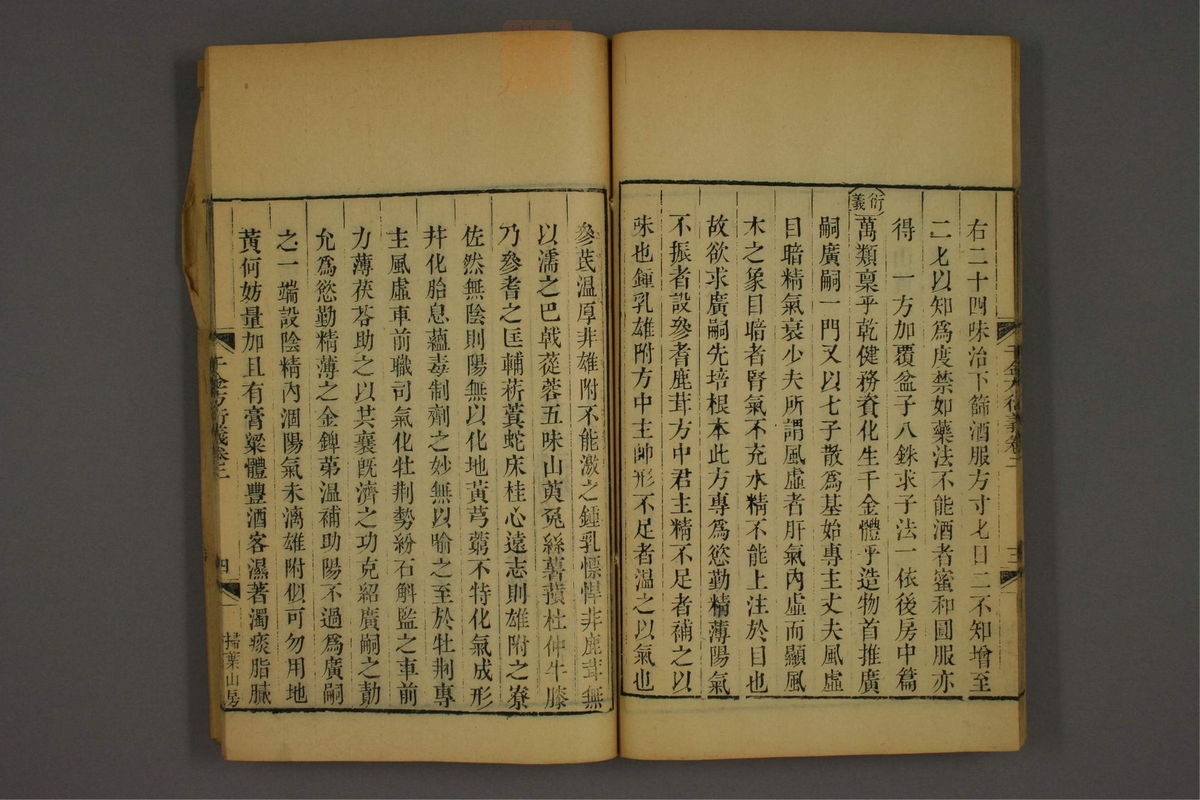 右二十四味治下篩酒服方寸匕日二不知增至
二匕以知爲度禁如藥法不能酒者蜜和圓服亦
得 一方加覆盆子八銖求子法一依後房中篇
衍義
萬類稟乎乾健務資化生千金體乎造物首推廣
嗣廣嗣一門又以七子散爲基始專主丈夫風虛
目暗精氣衰少夫所謂風虛者肝氣內虛而顯風
木之象目暗者腎氣不充水精不能上注於目也
故欲求廣嗣先培根本此方專爲慾勤精薄陽氣
不振者設參耆鹿茸方中君主精不足者補之以
味也鍾乳雄附方中主帥形不足者溫之以氣也
千金方衍義卷二
三
參芪溫厚非雄附不能激之鍾乳慓悍非鹿茸無
以濡之巴戟蓯蓉五味山萸兔絲薯蕷杜仲牛膝
乃參耆之匡輔菥蓂蛇床桂心遠志則雄附之寮
佐然無陰則陽無以化地黃芎藭不特化氣成形
幷化胎息蘊毒制劑之妙無以喻之至於牡荆專
主風虛車前職司氣化牡荆勢紛石斛監之車前
力薄茯苓助之以共襄旣濟之功克紹廣嗣之勣
允爲慾勤精薄之金錍苐溫補助陽不過爲廣嗣
之一端設陰精內涸陽氣未漓雄附似可勿用地
黃何妨量加且有膏粱體豐酒客濕著濁痰脂膩
千金方衍義卷二
四
掃葉山房